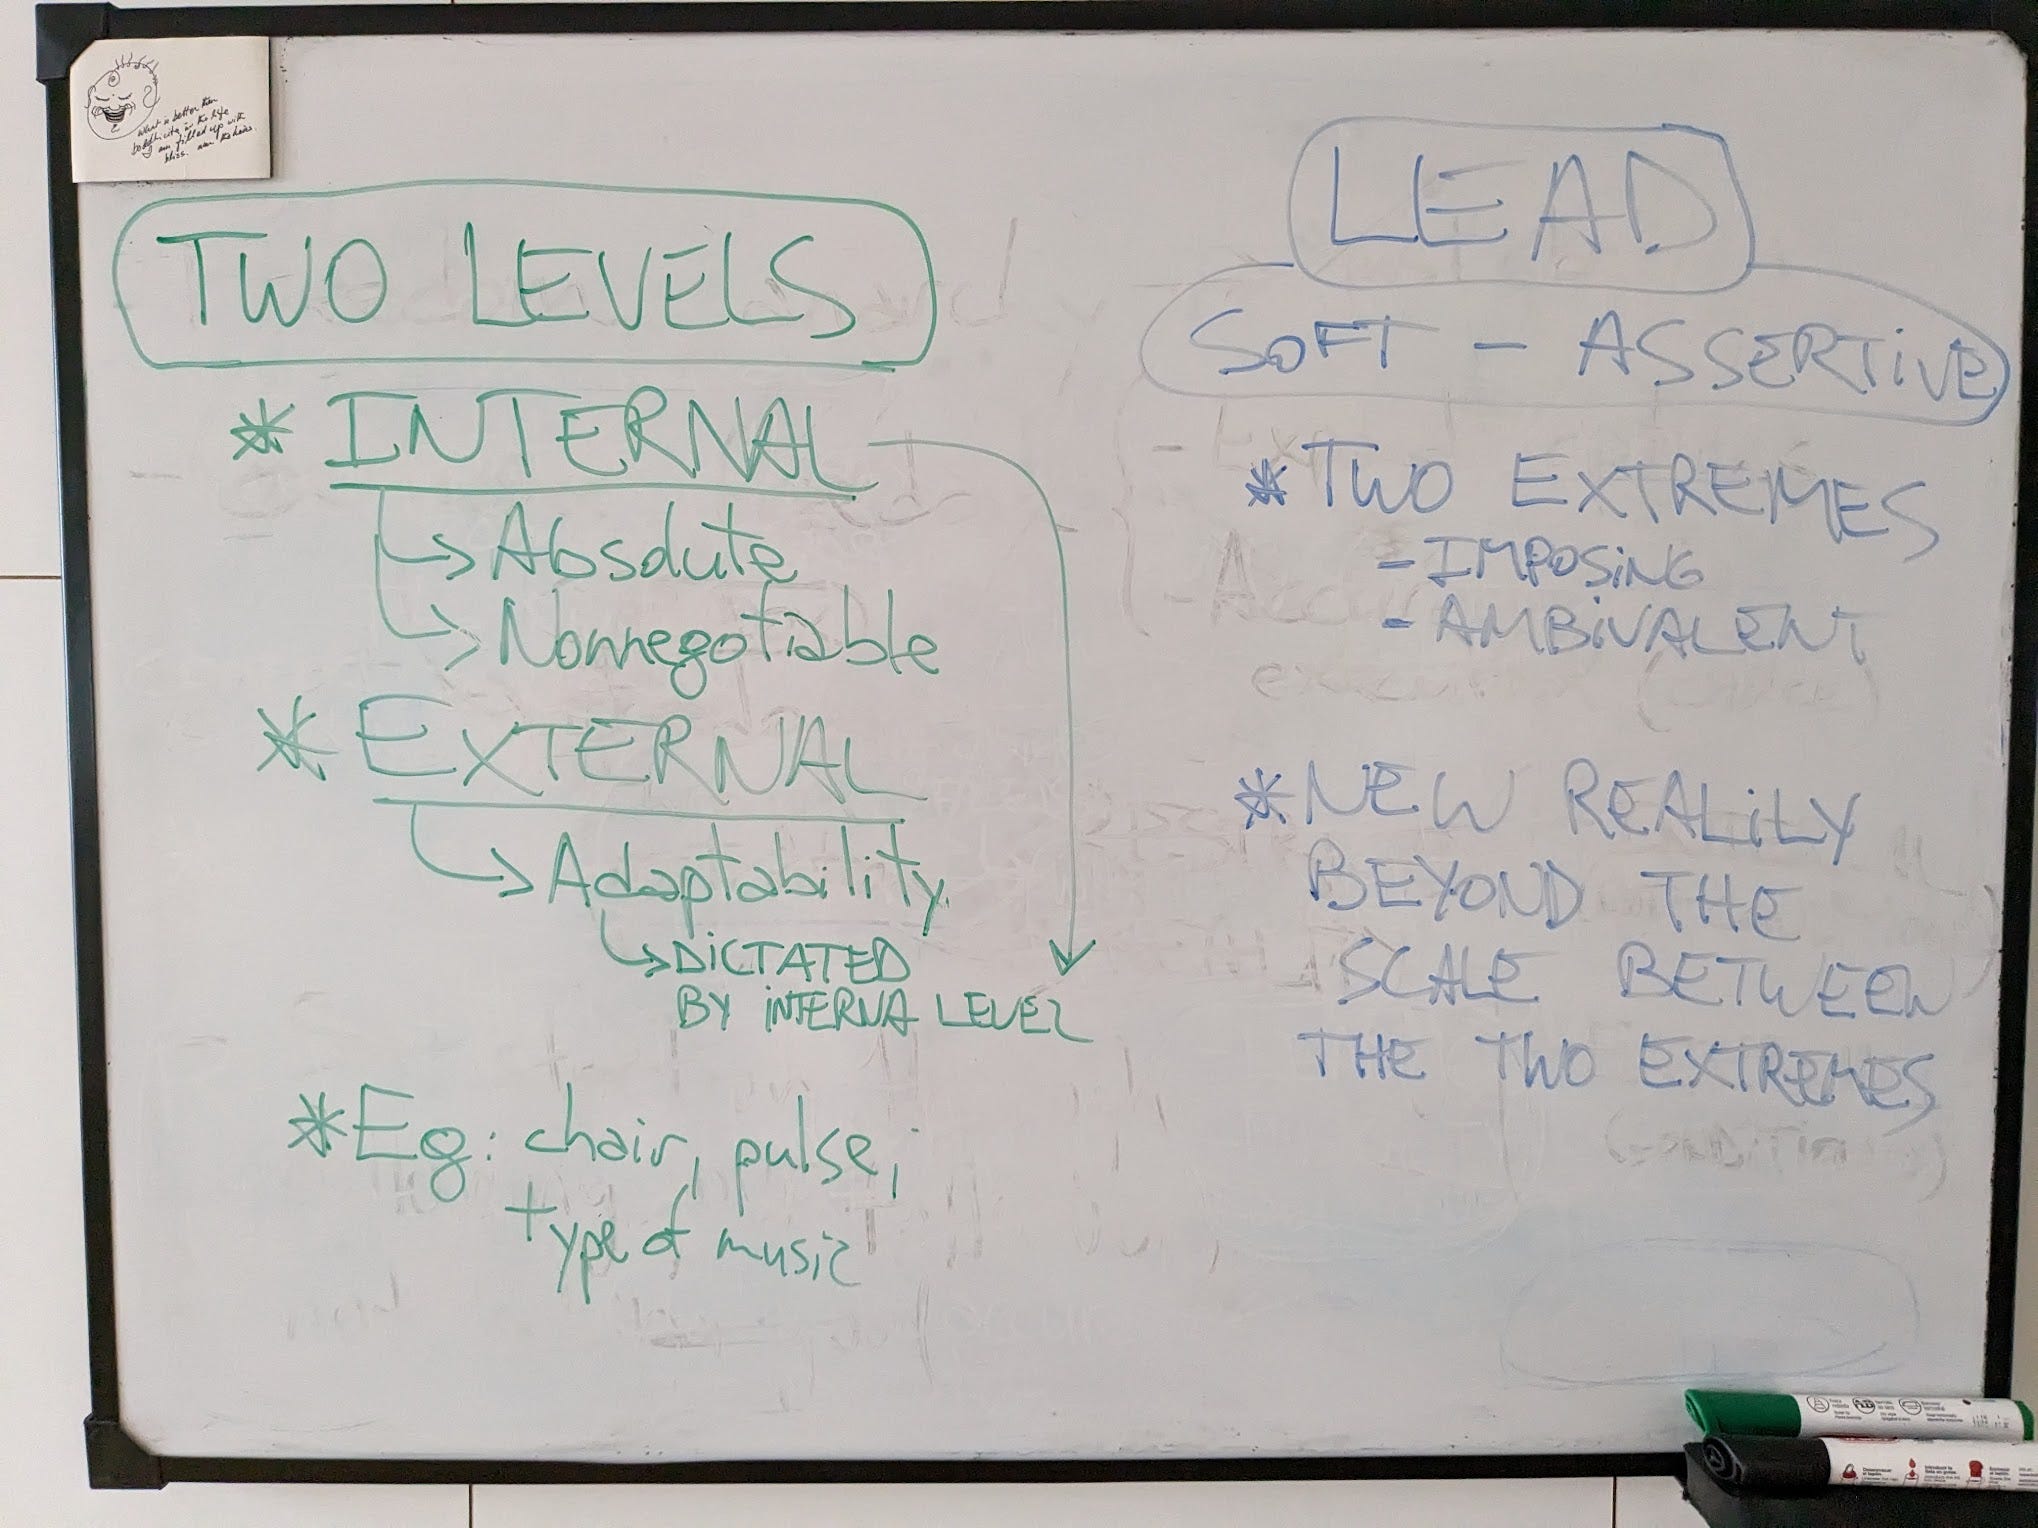 TWO LEVELS
* INTERNAL
Absolute
Nonnegotiable
* EXTERNAL
Adaptability
DiCTATED
BY iNTERNA LEVEL
* Eg: chair, pulse,
type of music
LEAD
SOFT - ASSERTiVE
* TWO EXTREMES
- IMPOSiNG
- AMBiVALENT
* NEW REALiLY
BEYOND THE
SCALE BETWEEN
THE TWO EXTREMES
What is better than
in the life
filled up with
bliss.